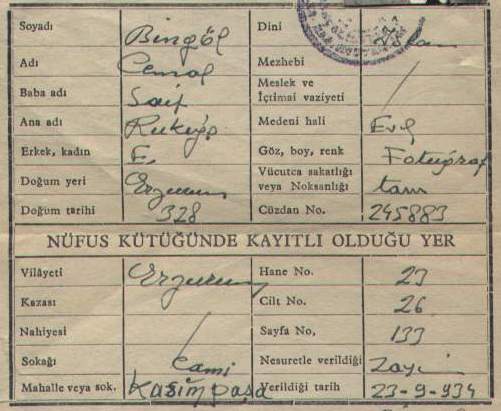 Soyadı Bingöl Dini
Adı Cemal Mezhebi
Baba adı Sait Meslek ve İçtimai vaziyeti
Ana adı Rukiye Medeni hali Evli
Erkek, kadın E. Göz, boy, renk Fotoğraf
Doğum yeri Erzurum Vücutca sakatlığı veya Noksanlığı tam
Doğum tarihi 328 Cüzdan No. 245883
NÜFUS KÜTÜĞÜNDE KAYITLI OLDUĞU YER
Vilâyeti Erzurum Hane No. 23
Kazası Cilt No. 26
Nahiyesi Sayfa No, 133
Sokağı Cami Nesuretle verildiği Zayi
Mahalle veya sok. Kasımpaşa Verildiği tarih 23-9-934